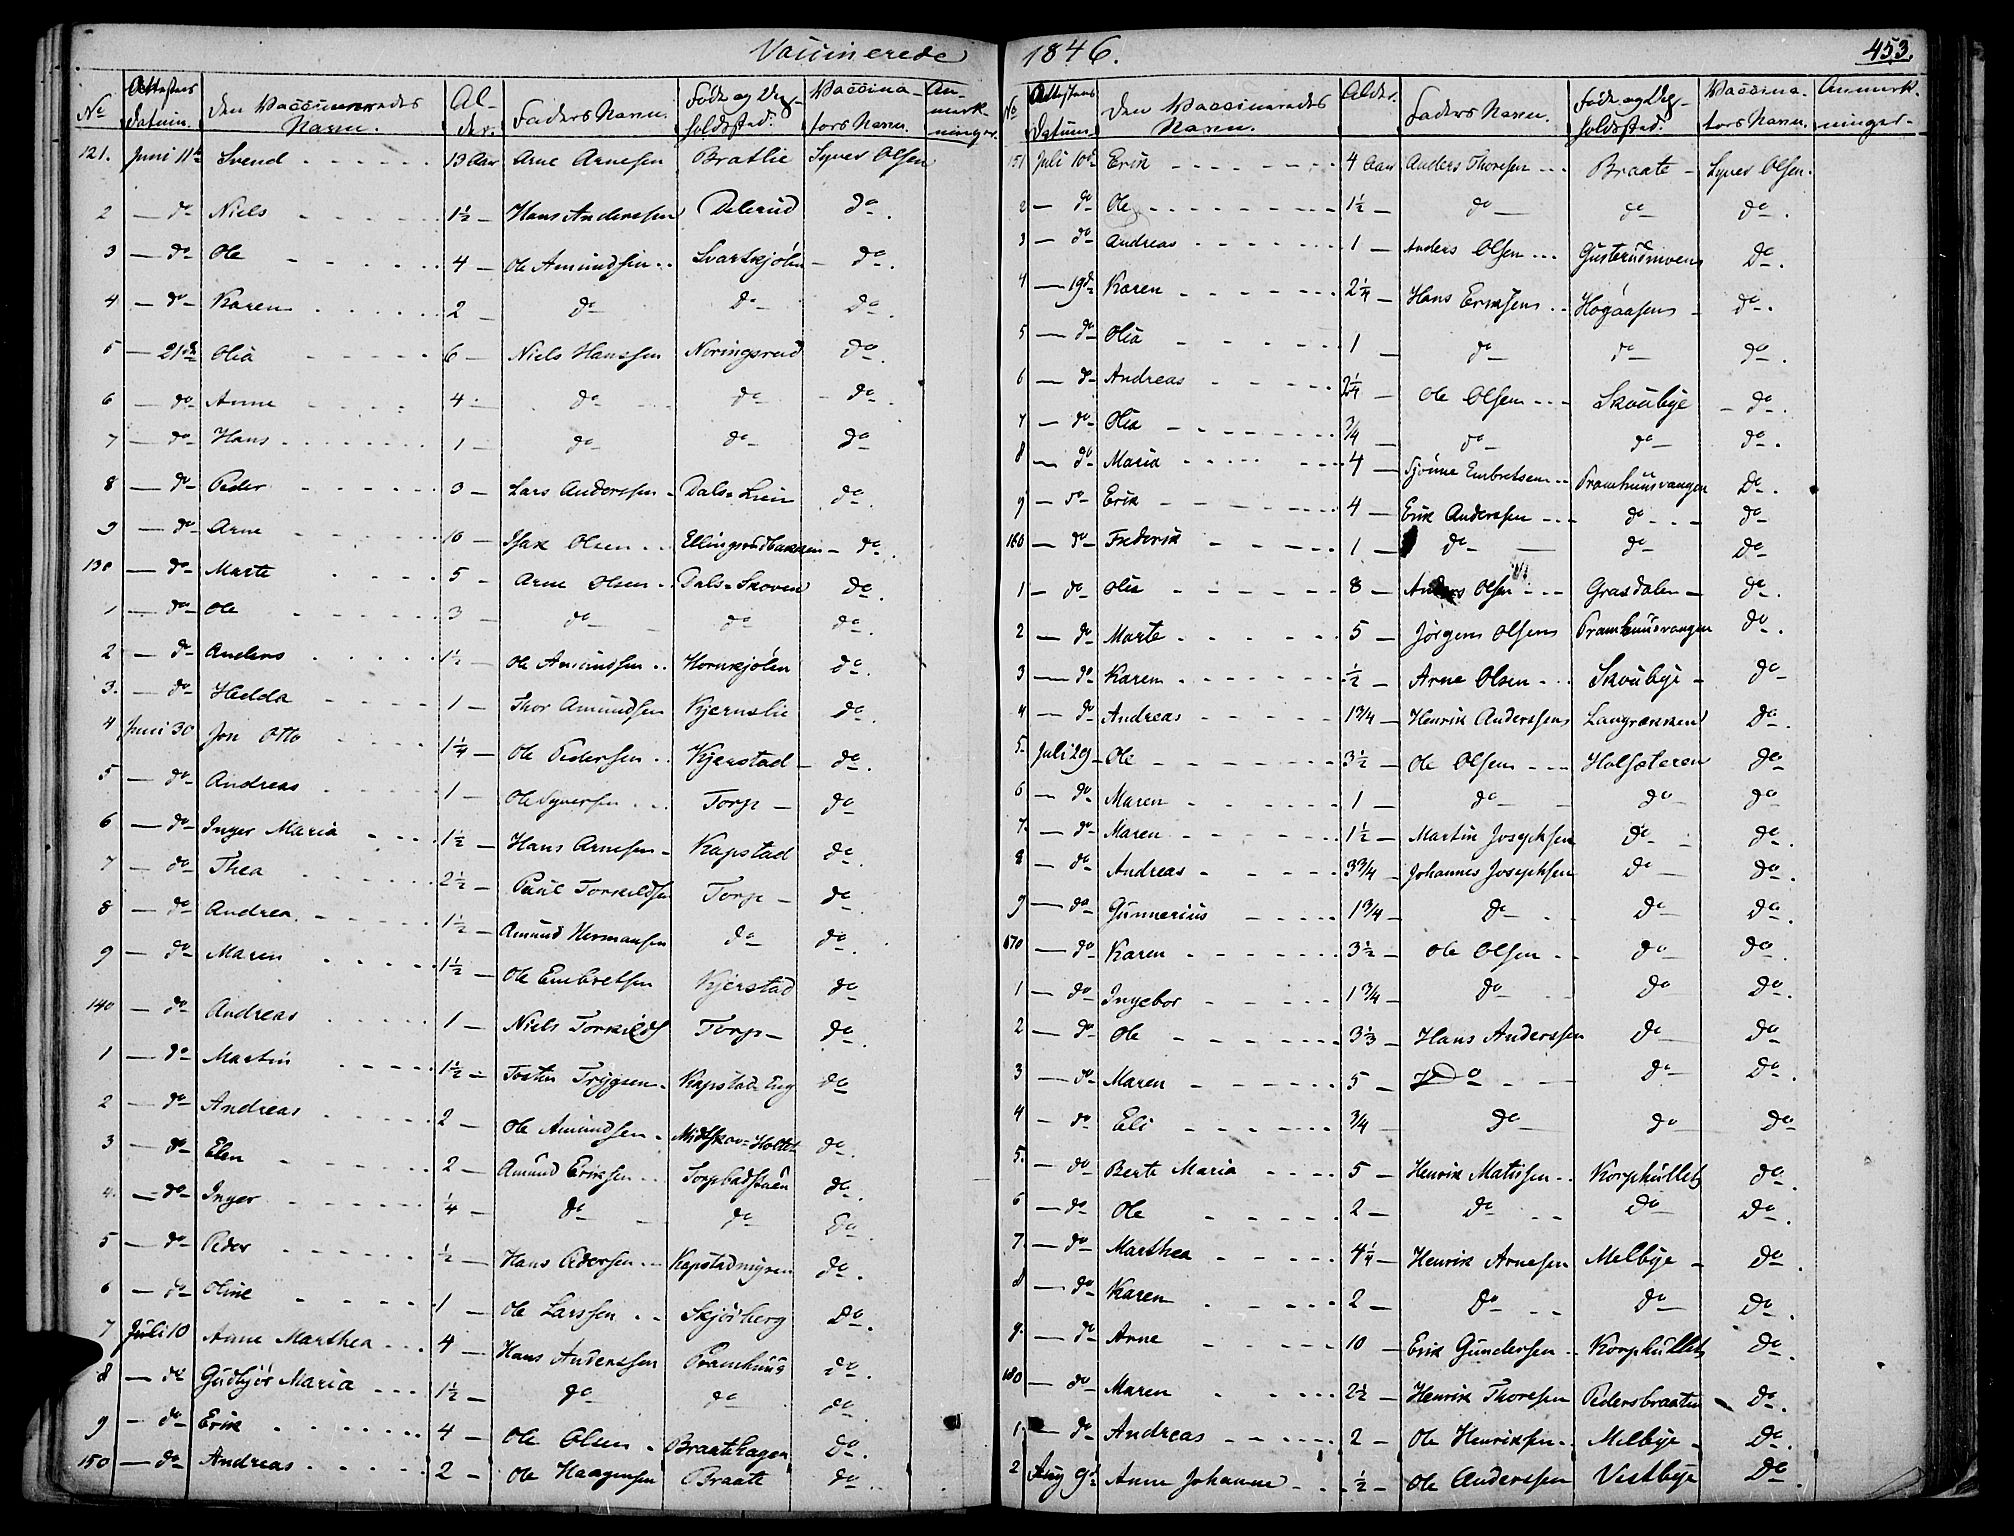 Vaccinerede
No Attestens Datum. Den Vaccineredes Navn. Alder. Faders Navn. Føde og Opholdssted. Vaccinators Navn. Anmærkninger.
121. Juni 11te Svend 13 Aar Arne Arnesen Bratlie Syver Olsen
2 — do Niels 1½ — Hans Anderssen Delerud do.
3 — do Ole 4 — Ole Amundsen Svartkjølen — do.
4 — do Karen 2 — do do do.
5 — 21de Olia 6 — Niels Hanssen Noringsrud do
6 — do Anne 4 — do do — do.
7 — do Hans 1 — do do do
8 — do Peder 3 — Lars Anderssen Dals-Lien do
9 — do Arne 10 — Isak Olsen Ellingsrudbakken — do.
130 — do Marte 5 — Arne Olsen Dals-Skoven do.
1 — do Ole 3 — do do do.
2 — do Anders 1½ — Ole Amundsen Hornkjølen do.
3. — do Hedda 1 — Thor Amundsen Kjernslie do.
4 Juni 30 Jon Otto 1¼ — Ole Pedersen Kjerstad — do.
5 — do Andreas 1 — Ole Syversen Torp — do
6 — do Inger Maria 1½ — Hans Arnesen Kapstad do.
7 — do Thea 2½ — Paul Torkildsen Torp — do.
8 — do Andrea 1½ — Amund Hermansen do do.
9 — do Maren 1½ — Ole Embretsen Kjerstad do
140 — do Andreas 1 — Niels Torkilds Torp — do.
1 — do Martin 1½ — Tosten Trygsen Kapstad Eng do
2 — do Andreas 2 — Ole Amundsen Midtskov-Holtet do.
3 — do Elen 2 — Amund Eriksen do.
4. — do Inger ¼ — do do do.
5 — do Peder ½ — Hans Pedersen Kapstadmyren do.
6 — do Oline 1 — Ole Larssen Skjørberg do.
7 Juli 10 Anne Marthea 4 — Hans Anderssen Pramhuus do.
8 — do Gudbjør Maria 1½ — do do do.
9 — do Erik 4 — Ole Olsen Braatehagen do.
150 — do Andreas 2 — Ole Haagensen Braate do
1846. 453.
No Attestens Datum. Den Vaccineredes Navn. Alder. Faders Navn. Føde og Opholdssted. Vaccinators Navn. Anmærkninger.
151 Juli 10de Erik 4 Aar Anders Thoresen Braate — Syver Olsen.
2 — do Ole 1½ — do do do.
3 — do Andreas 1 — Anders Olsen Gusterudmoen do.
4 — 19de Karen 2¼ — Hans Eriksen Høgaasen — do.
5 — do Olia 1 — do do do.
6 — do Andreas 2¼ — Ole Olsen Skoubye — do.
7 — do Olia ¾ — do do do.
8 — do Maria 4 — Embretsen Pramhuusvangen do.
9 — do Erik 4 — Erik Anderssen do do
160 — do Frederik 1 — do do do
1 — do Olia 8 — Anders Olsen Grasdalen — do.
2 — do Marte 5 — Jørgen Olsen Pramhuusvangen do.
3 — do Karen ½ — Arne Olsen Skoubye — do
4 — do Andreas 1¾ — Henrik Anderssen Langrækken do.
5. Juli 29 Ole 3½ — Ole Olsen Holsæteren do
6 — do Maren 1 — do do do
7. — do Maren 1½ — Martin Josephsen do do.
8 — do Andreas 3¾ — Johannes Josephsen do do.
9 — do Gunnerius 1¾ — do do do.
170 — do Karen 3½ — Ole Olsen do do.
1 — do Ingebor 1¾ — do do do.
2 — do Ole 3⅓ — Hans Anderssen do do
3 — do Maren 5 — do do do.
4 — do Eli ¾ — do do do
5. — do Berte Maria 5 — Henrik Matisen Korphullet do.
6 — do Ole 2 — do do do.
7. — do Marthea 4¼ — Henrik Arnesen Melbye — do.
8 — do Karen 2 — do do do.
9. — do Arne 10 — Erik Gundersen Korphullet do.
180 — do Maren 2½ — Henrik Thoresen Pedersbraaten do.
1 — do Andreas 2 — Ole Henriksen Melbye — do.
2 Aug 9de Anne Johanne ½ — Ole Anderssen Vestbye do